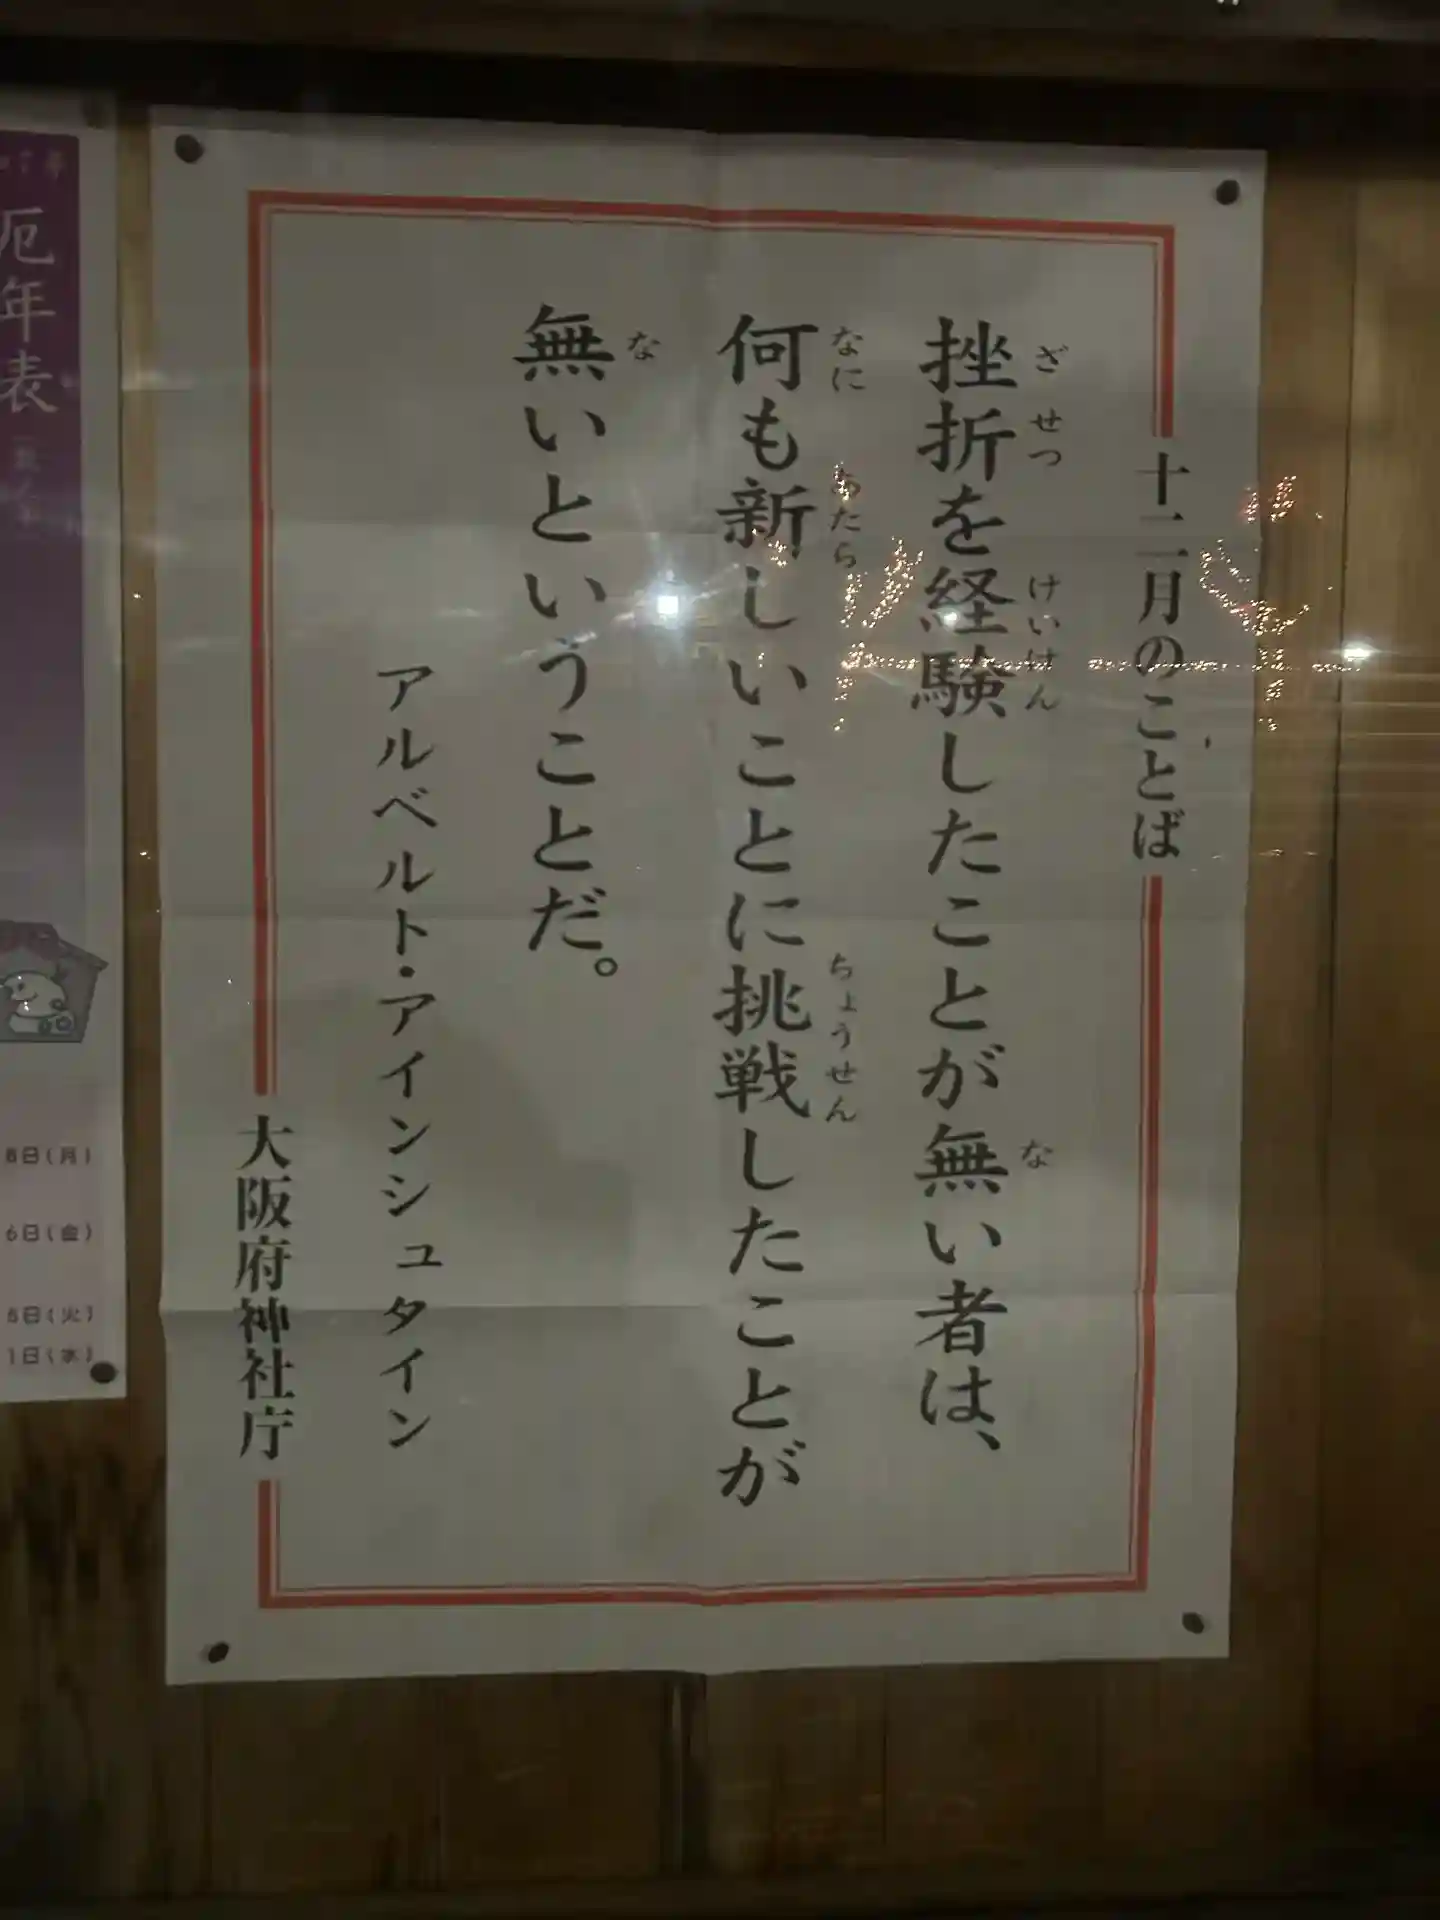 十二月のことば
挫折を経験したことが無い者は、
ざせつ
けいけん
な
何も新しいことに挑戦したことが
なに
あたら
ちょうせん
無いということだ。
な
アルベルト・アインシュタイン
大阪府神社庁
厄年表
8日(月)
6日(金)
1日(水)